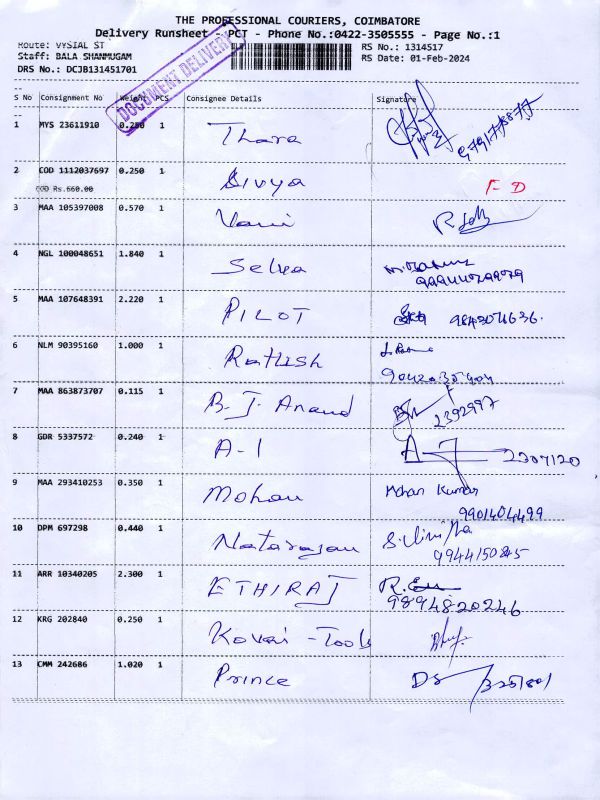 THE PROFESSIONAL COURIERS, COIMBATORE
Delivery Runsheet - PCT - Phone No.:0422-3505555 - Page No.:1
Route: VYSIAL ST
RS No.: 1314517
Staff: BALA SHANMUGAM
RS Date: 01-Feb-2024
DRS No.: DCJB131451701
DOCUMENT DELIVERY
S No Consignment No Weight PCS Consignee Details Signature
1 MYS 23611910 0.250 1 Thara
2 COD 1112037697 0.250 1 Divya F-D
COD Rs.660.00
3 MAA 105397008 0.570 1 Vani
4 NGL 100048651 1.840 1 Selva
5 MAA 107648391 2.220 1 PILOT
6 NLM 90395160 1.000 1 Rathish
7 MAA 863873707 0.115 1 B.J. Anand 2392997
8 GDR 5337572 0.240 1 A-1 2307120
9 MAA 293410253 0.350 1 Mohan Mohan Kumar
9901404499
10 DPM 697298 0.440 1 Natarajan
9944150845
11 ARR 10340205 2.300 1 ETHIRAJ
9894820246
12 KRG 202840 0.250 1 Kovai - Tools
13 CMM 242686 1.020 1 Prince